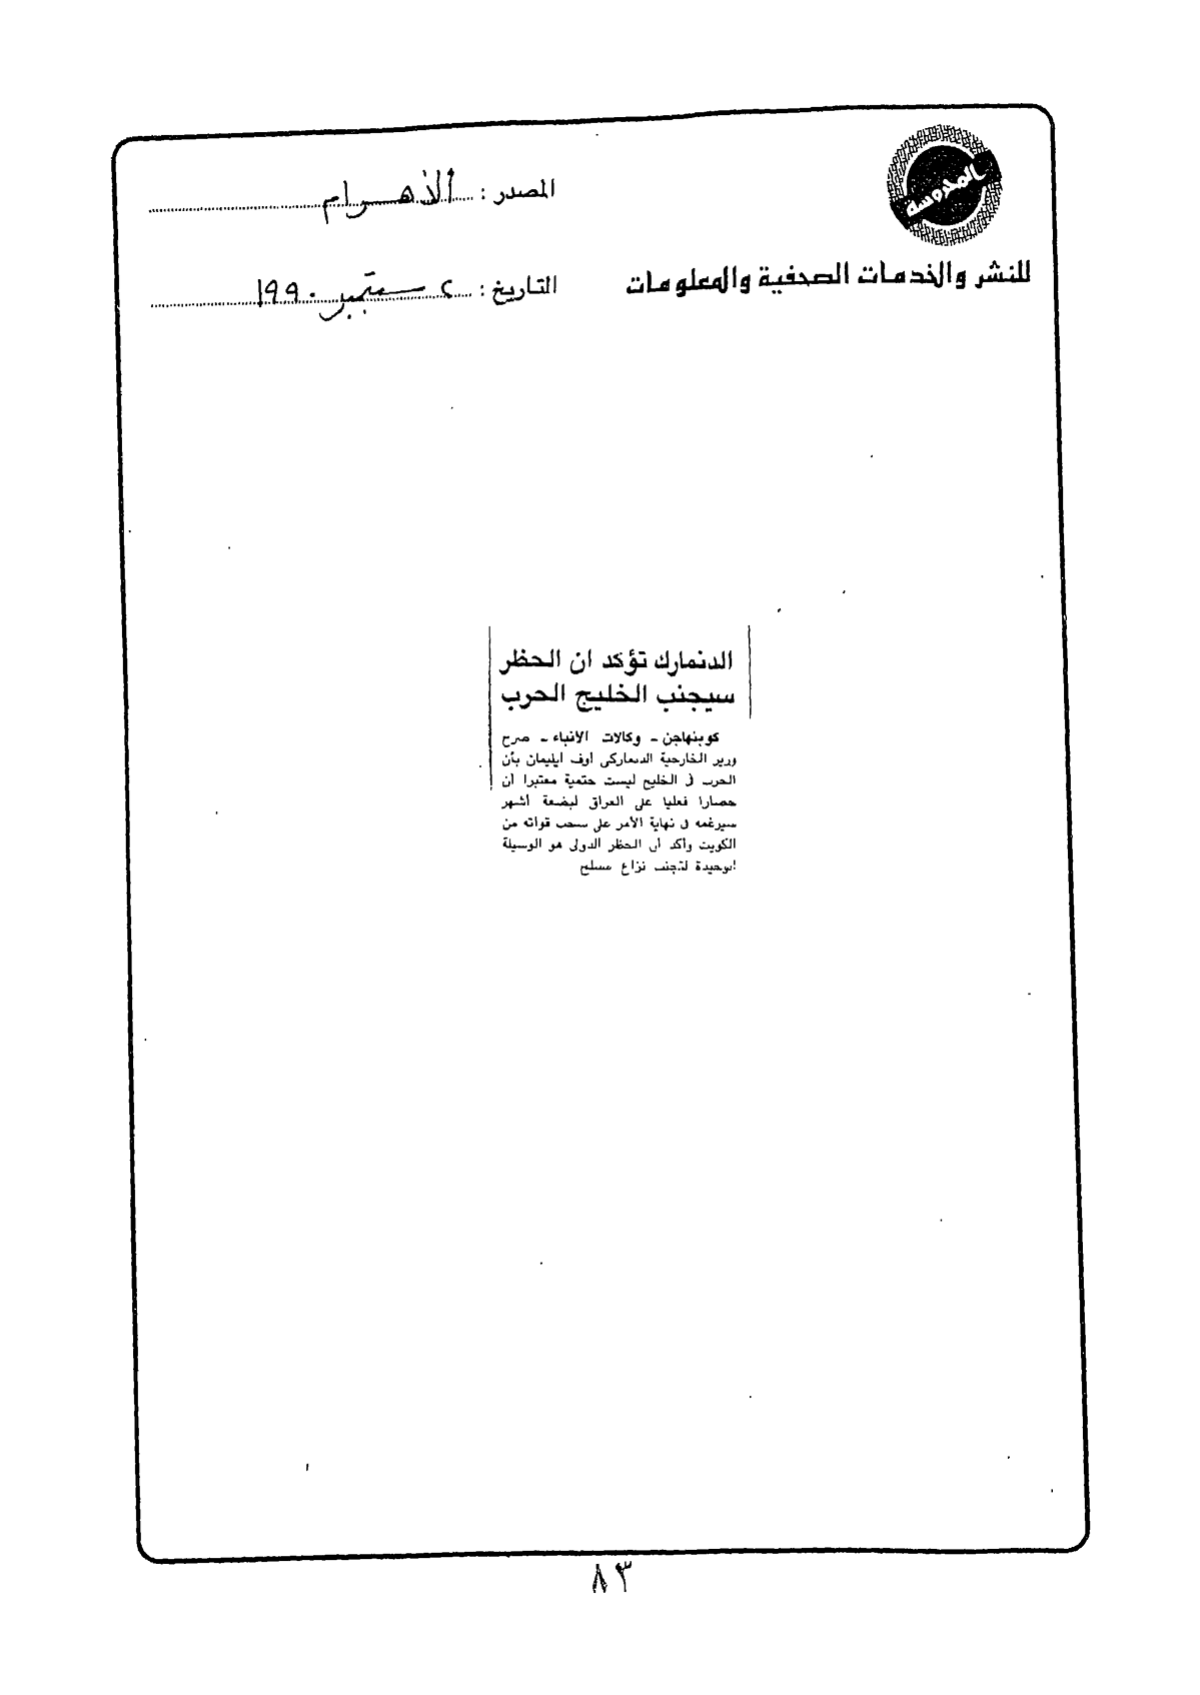 المحروسة
للنشر والخدمات الصحفية والمعلومات
المصدر : الأهرام
التاريخ : ٢ سبتمبر ١٩٩٠
الدنمارك تؤكد ان الحظر
سيجنب الخليج الحرب
كوبنهاجن - وكالات الانباء - صرح
وزير الخارجية الدنماركى أوف ايليمان بأن
الحرب فى الخليج ليست حتمية معتبرا أن
حصارا فعليا على العراق لبضعة أشهر
سيرغمه فى نهاية الأمر على سحب قواته من
الكويت وأكد أن الحظر الدولى هو الوسيلة
الوحيدة لتجنب نزاع مسلح
٨٣